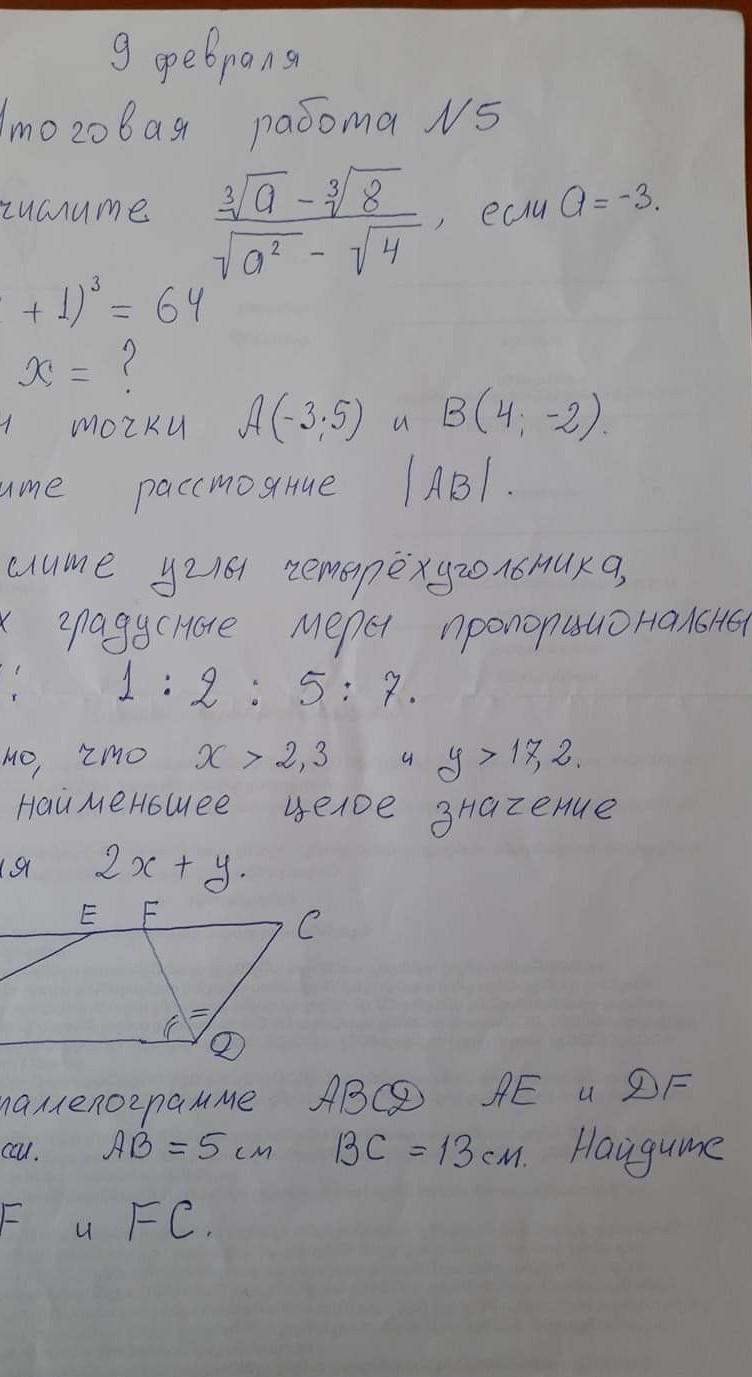 9 февраля
Итоговая работа N5
числите (∛a - ∛8)/(√a² - √4), если a = -3.
+ 1)³ = 64
x = ?
точки A(-3;5) и B(4; -2).
ите расстояние |AB|.
слите углы четырёхугольника,
х градусные меры пропорциональны
: 1 : 2 : 5 : 7.
но, что x > 2,3 и y > 17,2.
найменьшее целое значение
ия 2x + y.
E F C
D
раллелограмме ABCD AE и DF
сси. AB = 5 см BC = 13 см. Найдите
F и FC.